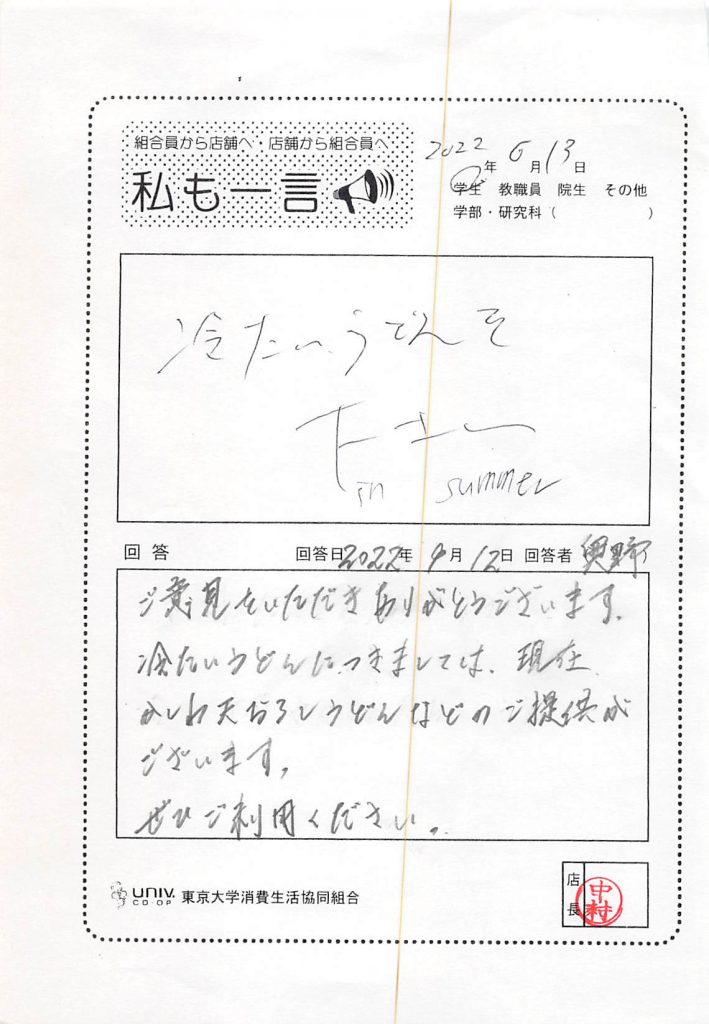 組合員から店舗へ・店舗から組合員へ
私も一言
2022年 6月13日
学生 教職員 院生 その他
学部・研究科( )
冷たいうどんを
下さい
in summer
回答 回答日2022年 9月12日 回答者 奥野
ご意見をいただきありがとうございます。
冷たいうどんにつきましては、現在
かしわ天おろしうどんなどのご提供が
ございます。
ぜひご利用ください。
UNIV. CO-OP 東京大学消費生活協同組合
店長 中村